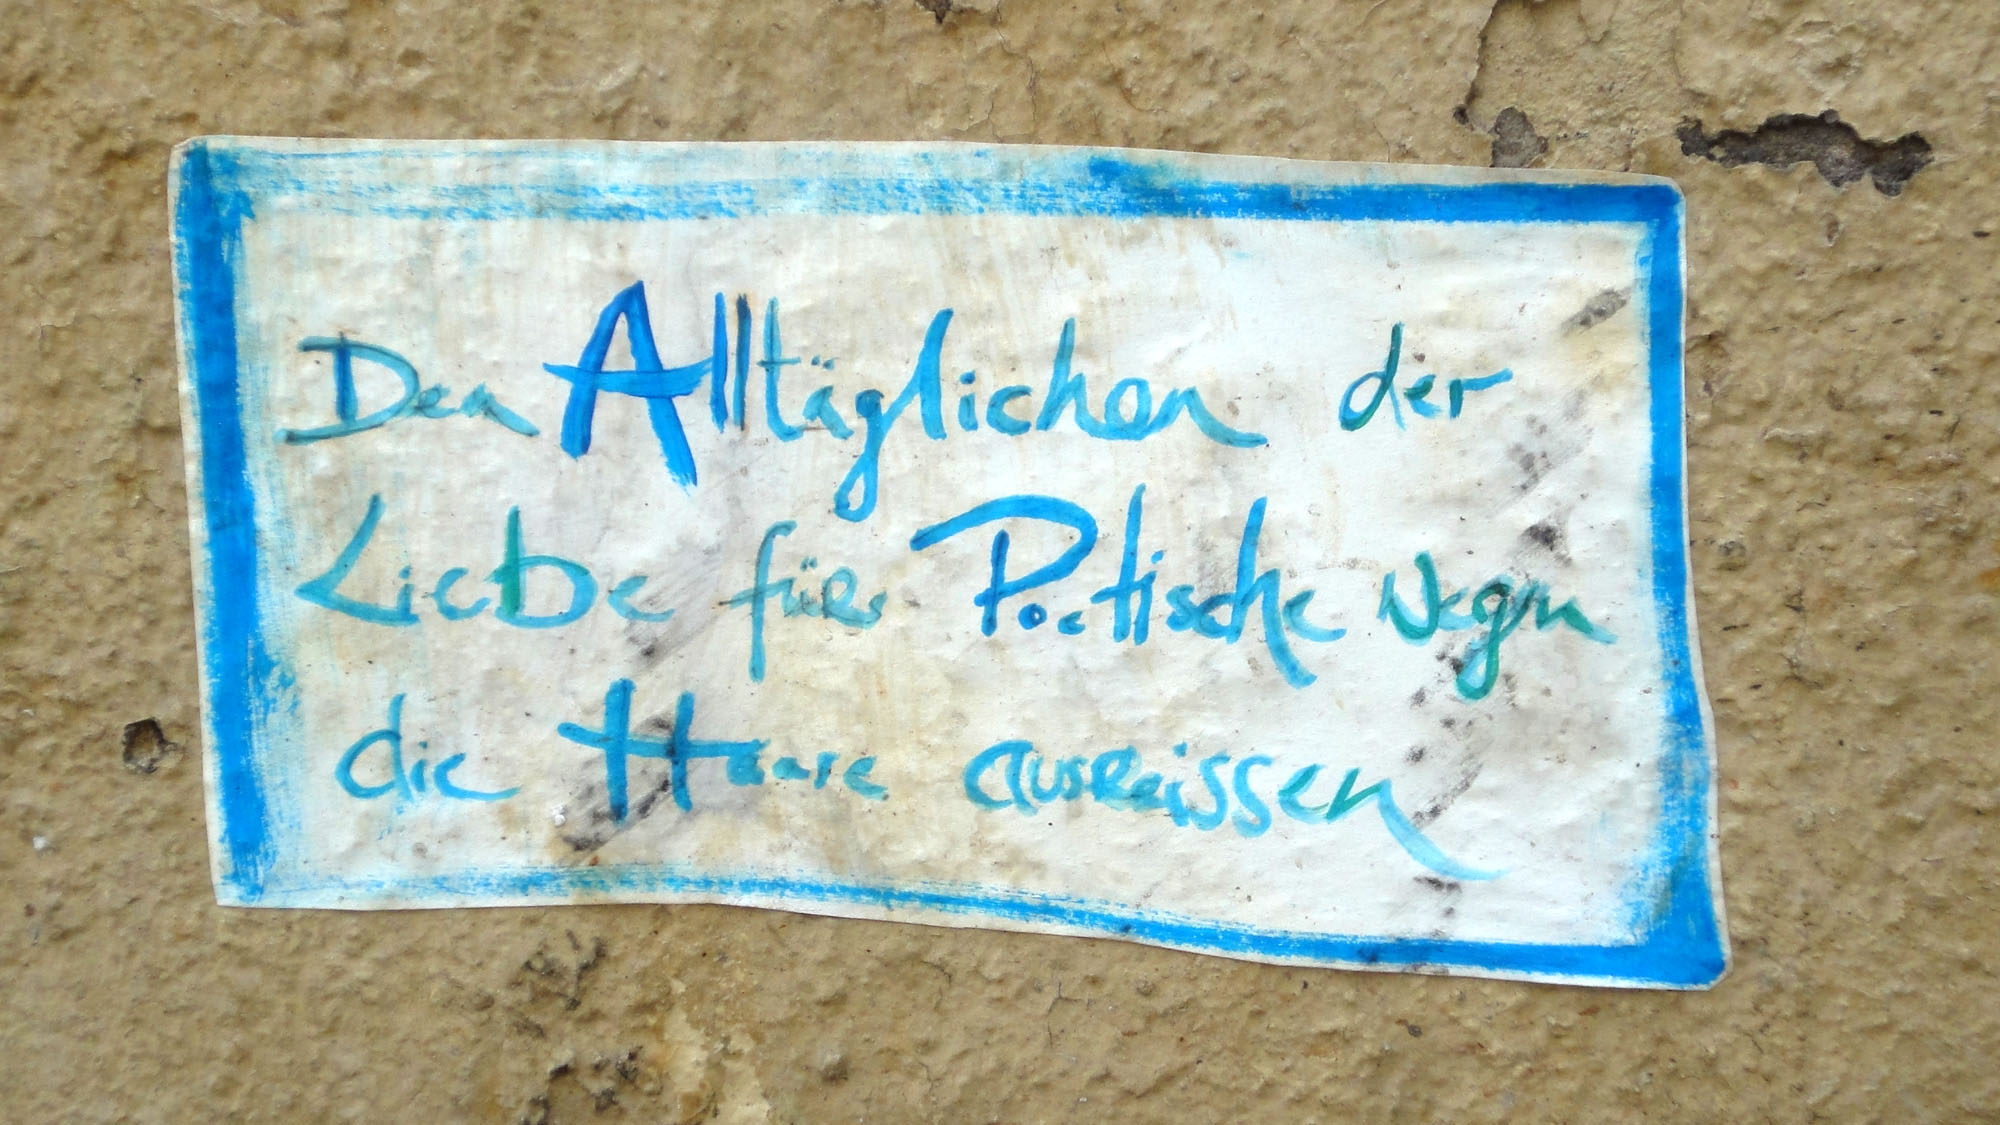 Den Alltäglichen der
Liebe für Poetische Wegen
die Haare ausreissen